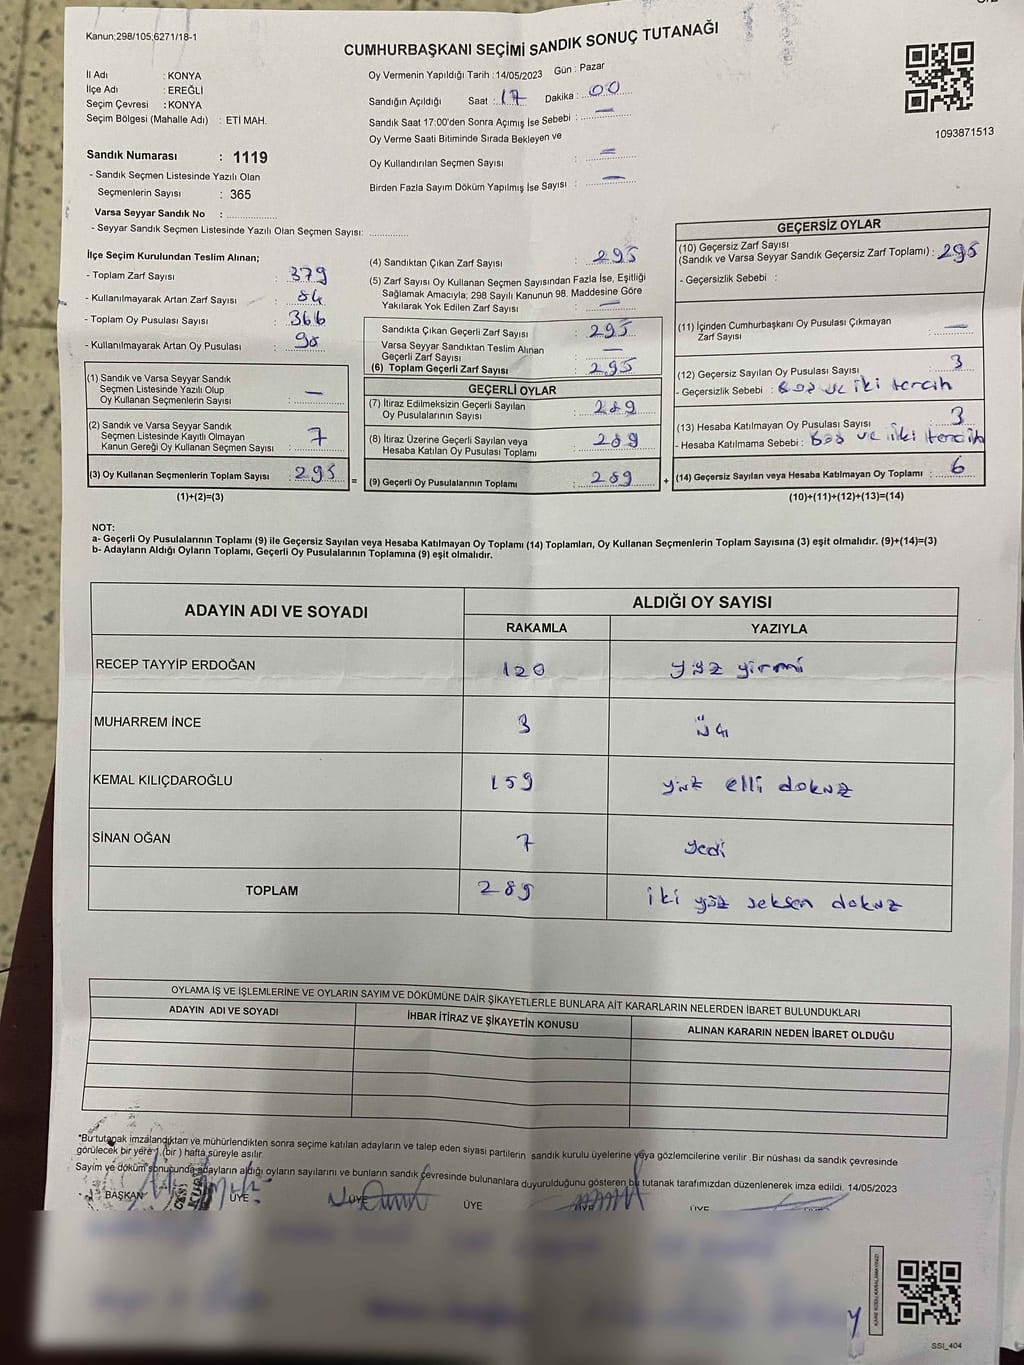 Kanun,298/105;6271/18-1
CUMHURBAŞKANI SEÇİMİ SANDIK SONUÇ TUTANAĞI
İl Adı : KONYA
İlçe Adı : EREĞLİ
Seçim Çevresi : KONYA
Seçim Bölgesi (Mahalle Adı) : ETİ MAH.
Oy Vermenin Yapıldığı Tarih : 14/05/2023 Gün : Pazar
Sandığın Açıldığı Saat : 17 Dakika : 00
Sandık Saat 17:00'den Sonra Açımış İse Sebebi : —
Oy Verme Saati Bitiminde Sırada Bekleyen ve
Oy Kullandırılan Seçmen Sayısı : =
Birden Fazla Sayım Döküm Yapılmış İse Sayısı : —
1093871513
Sandık Numarası : 1119
- Sandık Seçmen Listesinde Yazılı Olan
Seçmenlerin Sayısı : 365
Varsa Seyyar Sandık No :
- Seyyar Sandık Seçmen Listesinde Yazılı Olan Seçmen Sayısı:
İlçe Seçim Kurulundan Teslim Alınan;
- Toplam Zarf Sayısı : 379
- Kullanılmayarak Artan Zarf Sayısı : 84
- Toplam Oy Pusulası Sayısı : 366
- Kullanılmayarak Artan Oy Pusulası :
(1) Sandık ve Varsa Seyyar Sandık
Seçmen Listesinde Yazılı Olup
Oy Kullanan Seçmenlerin Sayısı : —
(2) Sandık ve Varsa Seyyar Sandık
Seçmen Listesinde Kayıtlı Olmayan
Kanun Gereği Oy Kullanan Seçmen Sayısı : 7
(3) Oy Kullanan Seçmenlerin Toplam Sayısı : 295
(1)+(2)=(3)
(4) Sandıktan Çıkan Zarf Sayısı : 295
(5) Zarf Sayısı Oy Kullanan Seçmen Sayısından Fazla İse, Eşitliği
Sağlamak Amacıyla; 298 Sayılı Kanunun 98. Maddesine Göre
Yakılarak Yok Edilen Zarf Sayısı : —
Sandıkta Çıkan Geçerli Zarf Sayısı : 295
Varsa Seyyar Sandıktan Teslim Alınan
Geçerli Zarf Sayısı : —
(6) Toplam Geçerli Zarf Sayısı : 295
GEÇERLİ OYLAR
(7) İtiraz Edilmeksizin Geçerli Sayılan
Oy Pusulalarının Sayısı : 289
(8) İtiraz Üzerine Geçerli Sayılan veya
Hesaba Katılan Oy Pusulası Toplamı : 289
= (9) Geçerli Oy Pusulalarının Toplamı : 289 +
GEÇERSİZ OYLAR
(10) Geçersiz Zarf Sayısı
(Sandık ve Varsa Seyyar Sandık Geçersiz Zarf Toplamı) : 295
- Geçersizlik Sebebi :
(11) İçinden Cumhurbaşkanı Oy Pusulası Çıkmayan
Zarf Sayısı : —
(12) Geçersiz Sayılan Oy Pusulası Sayısı : 3
- Geçersizlik Sebebi : Boş ve iki tercih
(13) Hesaba Katılmayan Oy Pusulası Sayısı : 3
- Hesaba Katılmama Sebebi : Boş ve iki tercih
(14) Geçersiz Sayılan veya Hesaba Katılmayan Oy Toplamı : 6
(10)+(11)+(12)+(13)=(14)
NOT:
a- Geçerli Oy Pusulalarının Toplamı (9) ile Geçersiz Sayılan veya Hesaba Katılmayan Oy Toplamı (14) Toplamları, Oy Kullanan Seçmenlerin Toplam Sayısına (3) eşit olmalıdır. (9)+(14)=(3)
b- Adayların Aldığı Oyların Toplamı, Geçerli Oy Pusulalarının Toplamına (9) eşit olmalıdır.
ADAYIN ADI VE SOYADI ALDIĞI OY SAYISI
RAKAMLA YAZIYLA
RECEP TAYYİP ERDOĞAN 120 yüz yirmi
MUHARREM İNCE 3 üç
KEMAL KILIÇDAROĞLU 159 yüz elli dokuz
SİNAN OĞAN 7 yedi
TOPLAM 289 iki yüz seksen dokuz
OYLAMA İŞ VE İŞLEMLERİNE VE OYLARIN SAYIM VE DÖKÜMÜNE DAİR ŞİKAYETLERLE BUNLARA AİT KARARLARIN NELERDEN İBARET BULUNDUKLARI
ADAYIN ADI VE SOYADI İHBAR İTİRAZ VE ŞİKAYETİN KONUSU ALINAN KARARIN NEDEN İBARET OLDUĞU
*Bu tutanak imzalandıktan ve mühürlendikten sonra seçime katılan adayların ve talep eden siyasi partilerin sandık kurulu üyelerine veya gözlemcilerine verilir .Bir nüshası da sandık çevresinde
görülecek bir yere 1 (bir ) hafta süreyle asılır.
Sayım ve döküm sonucunda adayların aldığı oyların sayılarını ve bunların sandık çevresinde bulunanlara duyurulduğunu gösteren bu tutanak tarafımızdan düzenlenerek imza edildi. 14/05/2023
BAŞKAN ÜYE ÜYE ÜYE ÜYE ÜYE ÜYE
SSİ_404